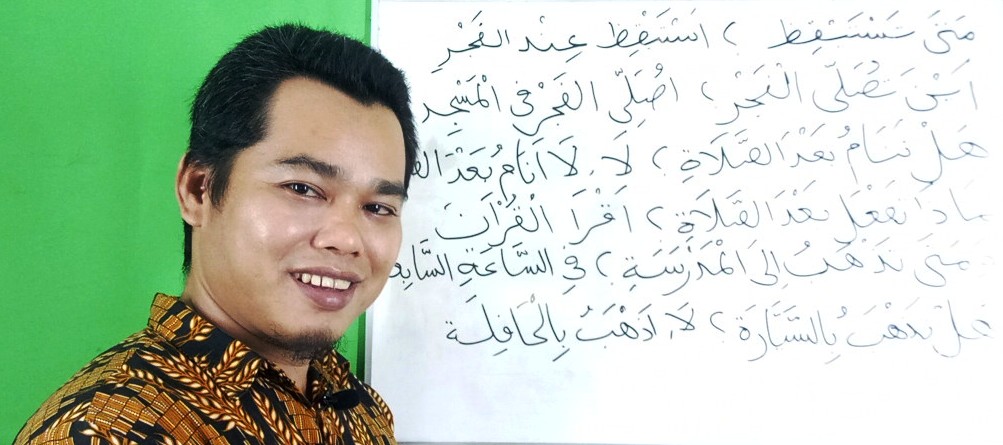 مَتَى تَسْتَيْقِظُ ؟ اَسْتَيْقِظُ عِنْدَ الفَجْرِ
اَيْنَ تُصَلِّى الْفَجْرَ ؟ اُصَلِّى الفَجْرَ فِى الْمَسْجِد
هَلْ تَنَامُ بَعْدَ الصَّلَاةِ ؟ لَا، لَا اَنَامُ بَعْدَ
مَاذَا تَفْعَل بَعْدَ الصَّلَاةِ ؟ اَقْرَأ الْقُرْآنَ
مَتَى تَذْهَبُ اِلَى الْمَدْرَسَةِ ؟ فِى السَّاعَةِ السَّابِعَة
هَلْ تَذْهَبُ بِالسَّيَّارَة ؟ لَا، اَذْهَبُ بِالْحَافِلَة